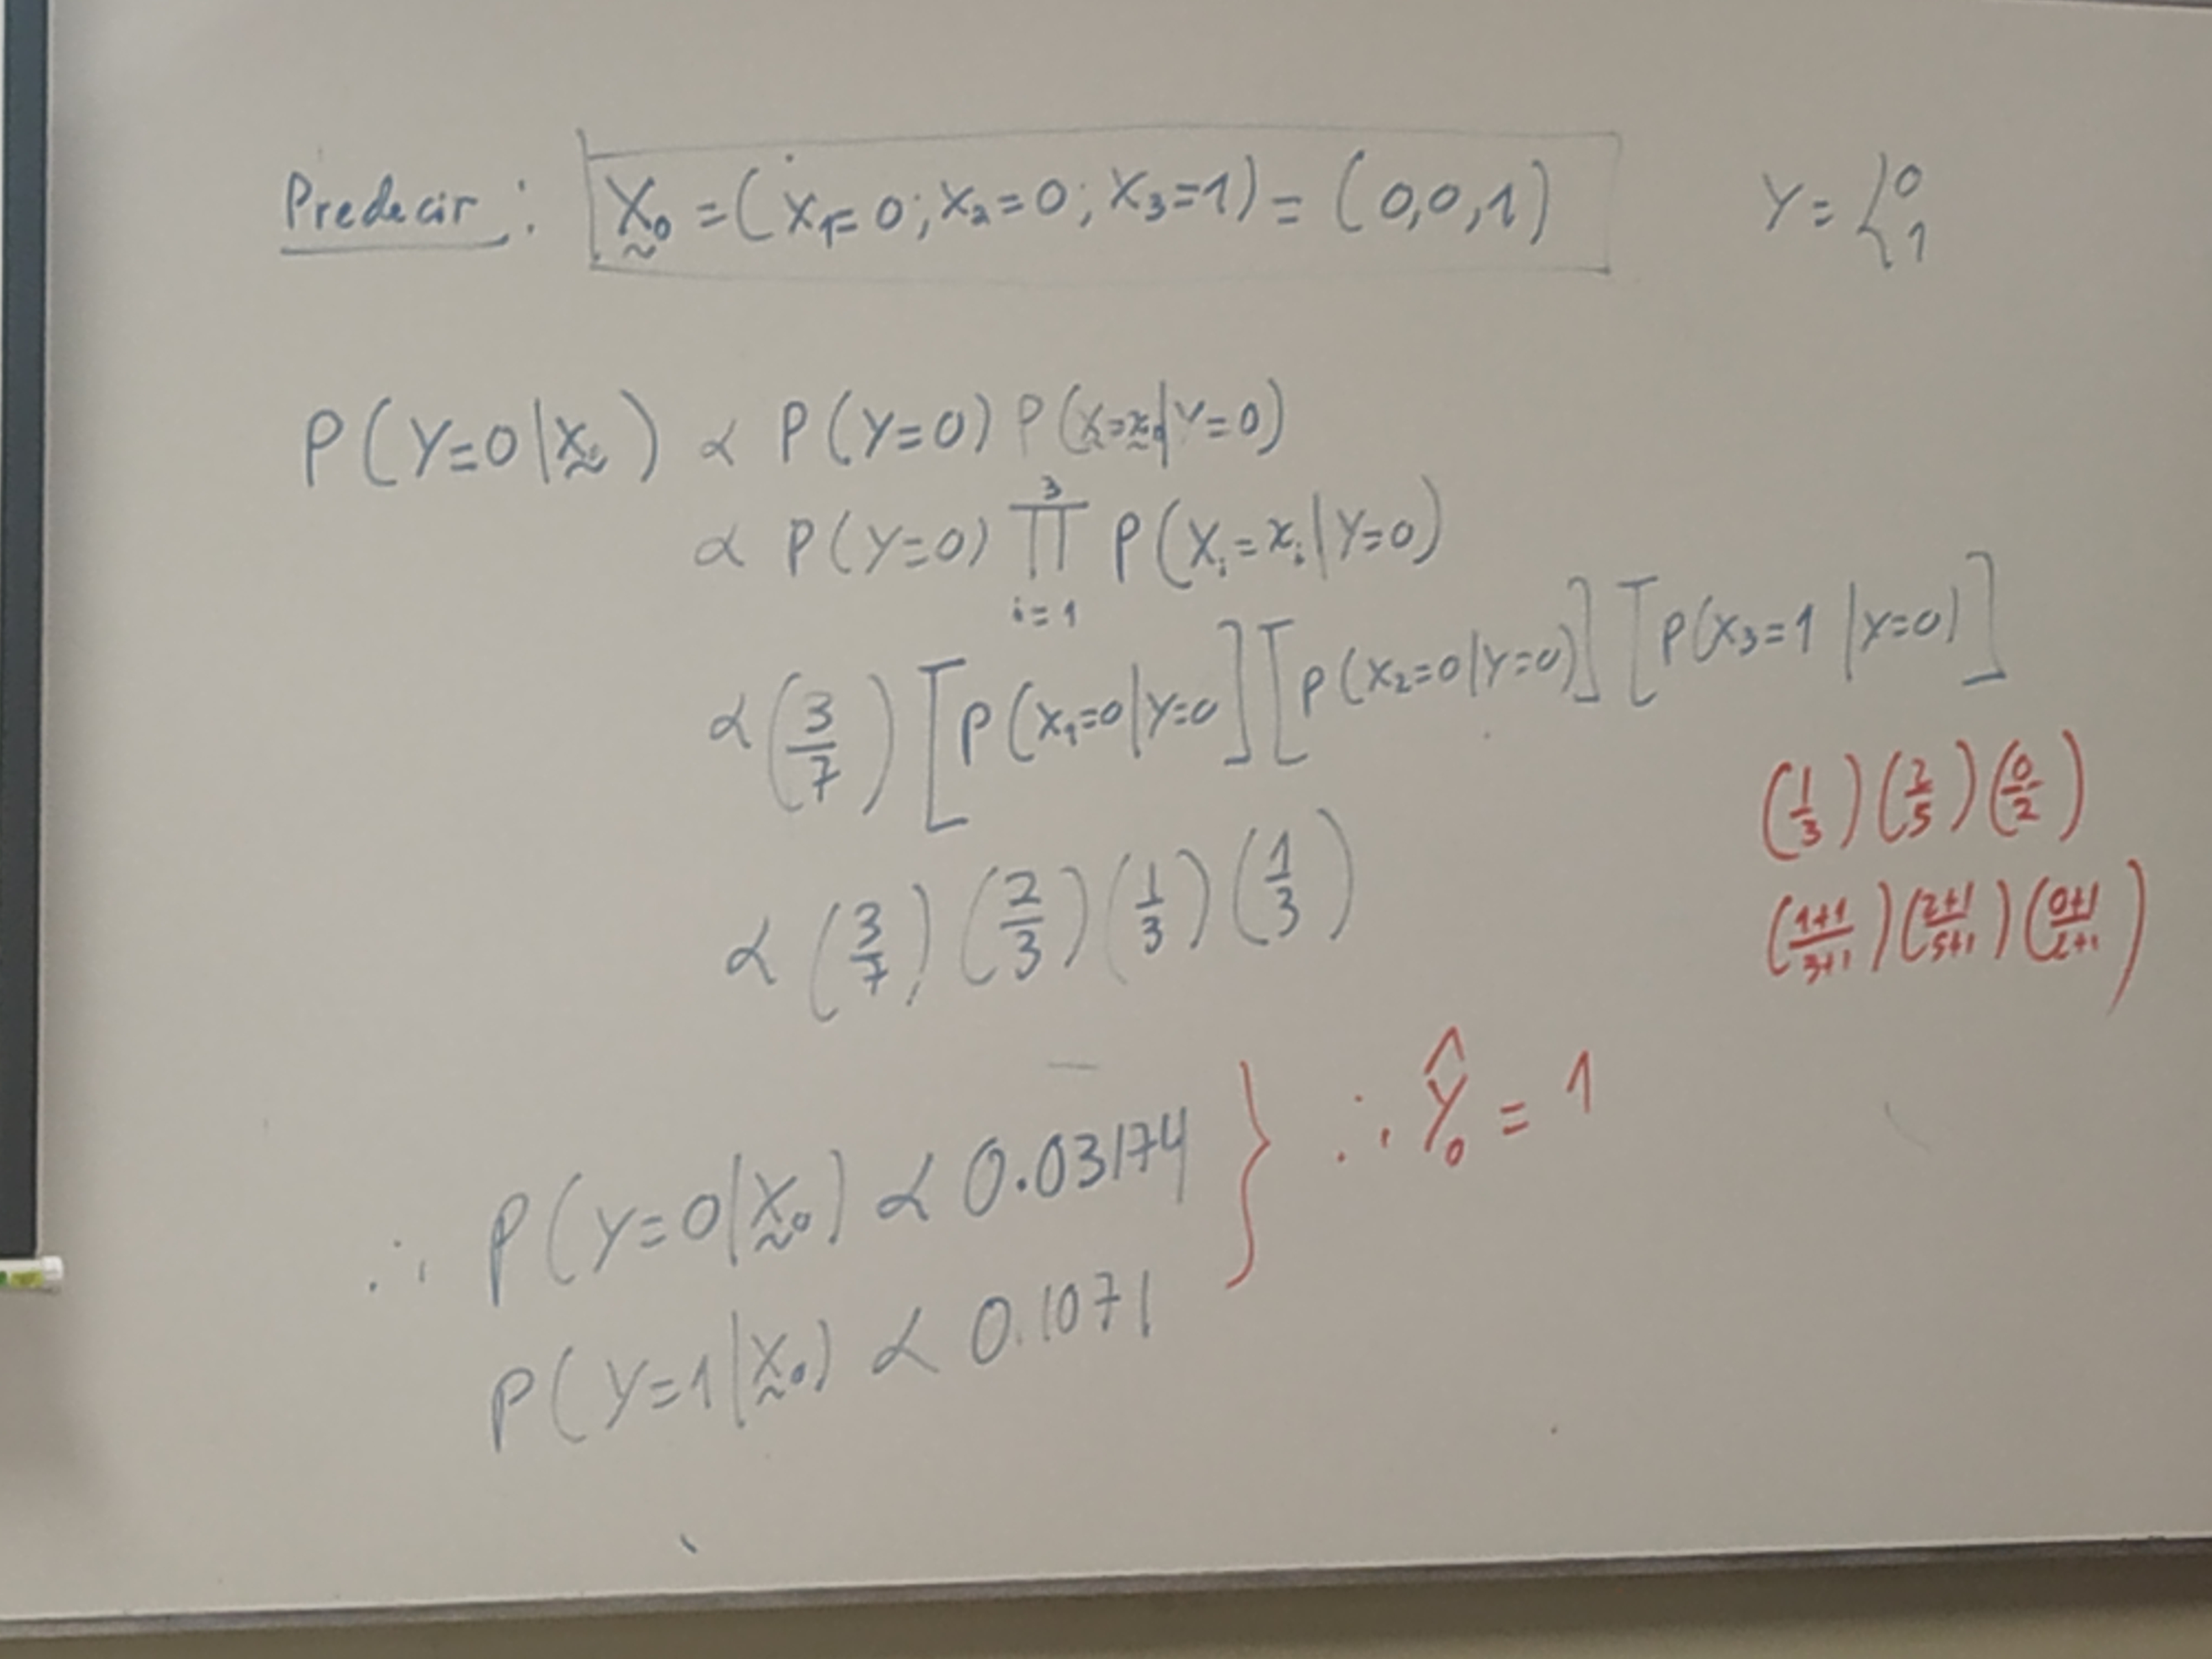 Predecir: X₀ = (X₁=0; X₂=0; X₃=1) = (0,0,1)
Y = { 0 1
P(Y=0|X₀) ∝ P(Y=0) P(X=x₀|Y=0)
∝ P(Y=0) ∏ᵢ₌₁³ P(Xᵢ=xᵢ|Y=0)
∝ (3/7) [P(X₁=0|Y=0] [P(X₂=0|Y=0)] [P(X₃=1|Y=0)]
∝ (3/7) (2/3) (1/3) (1/3)
(1/3) (2/5) (0/2)
(1+1/3+1) (2+1/5+1) (0+1/2+1)
∴ P(Y=0|X₀) ∝ 0.03174
P(Y=1|X₀) ∝ 0.1071
} ∴ Ŷ₀ = 1